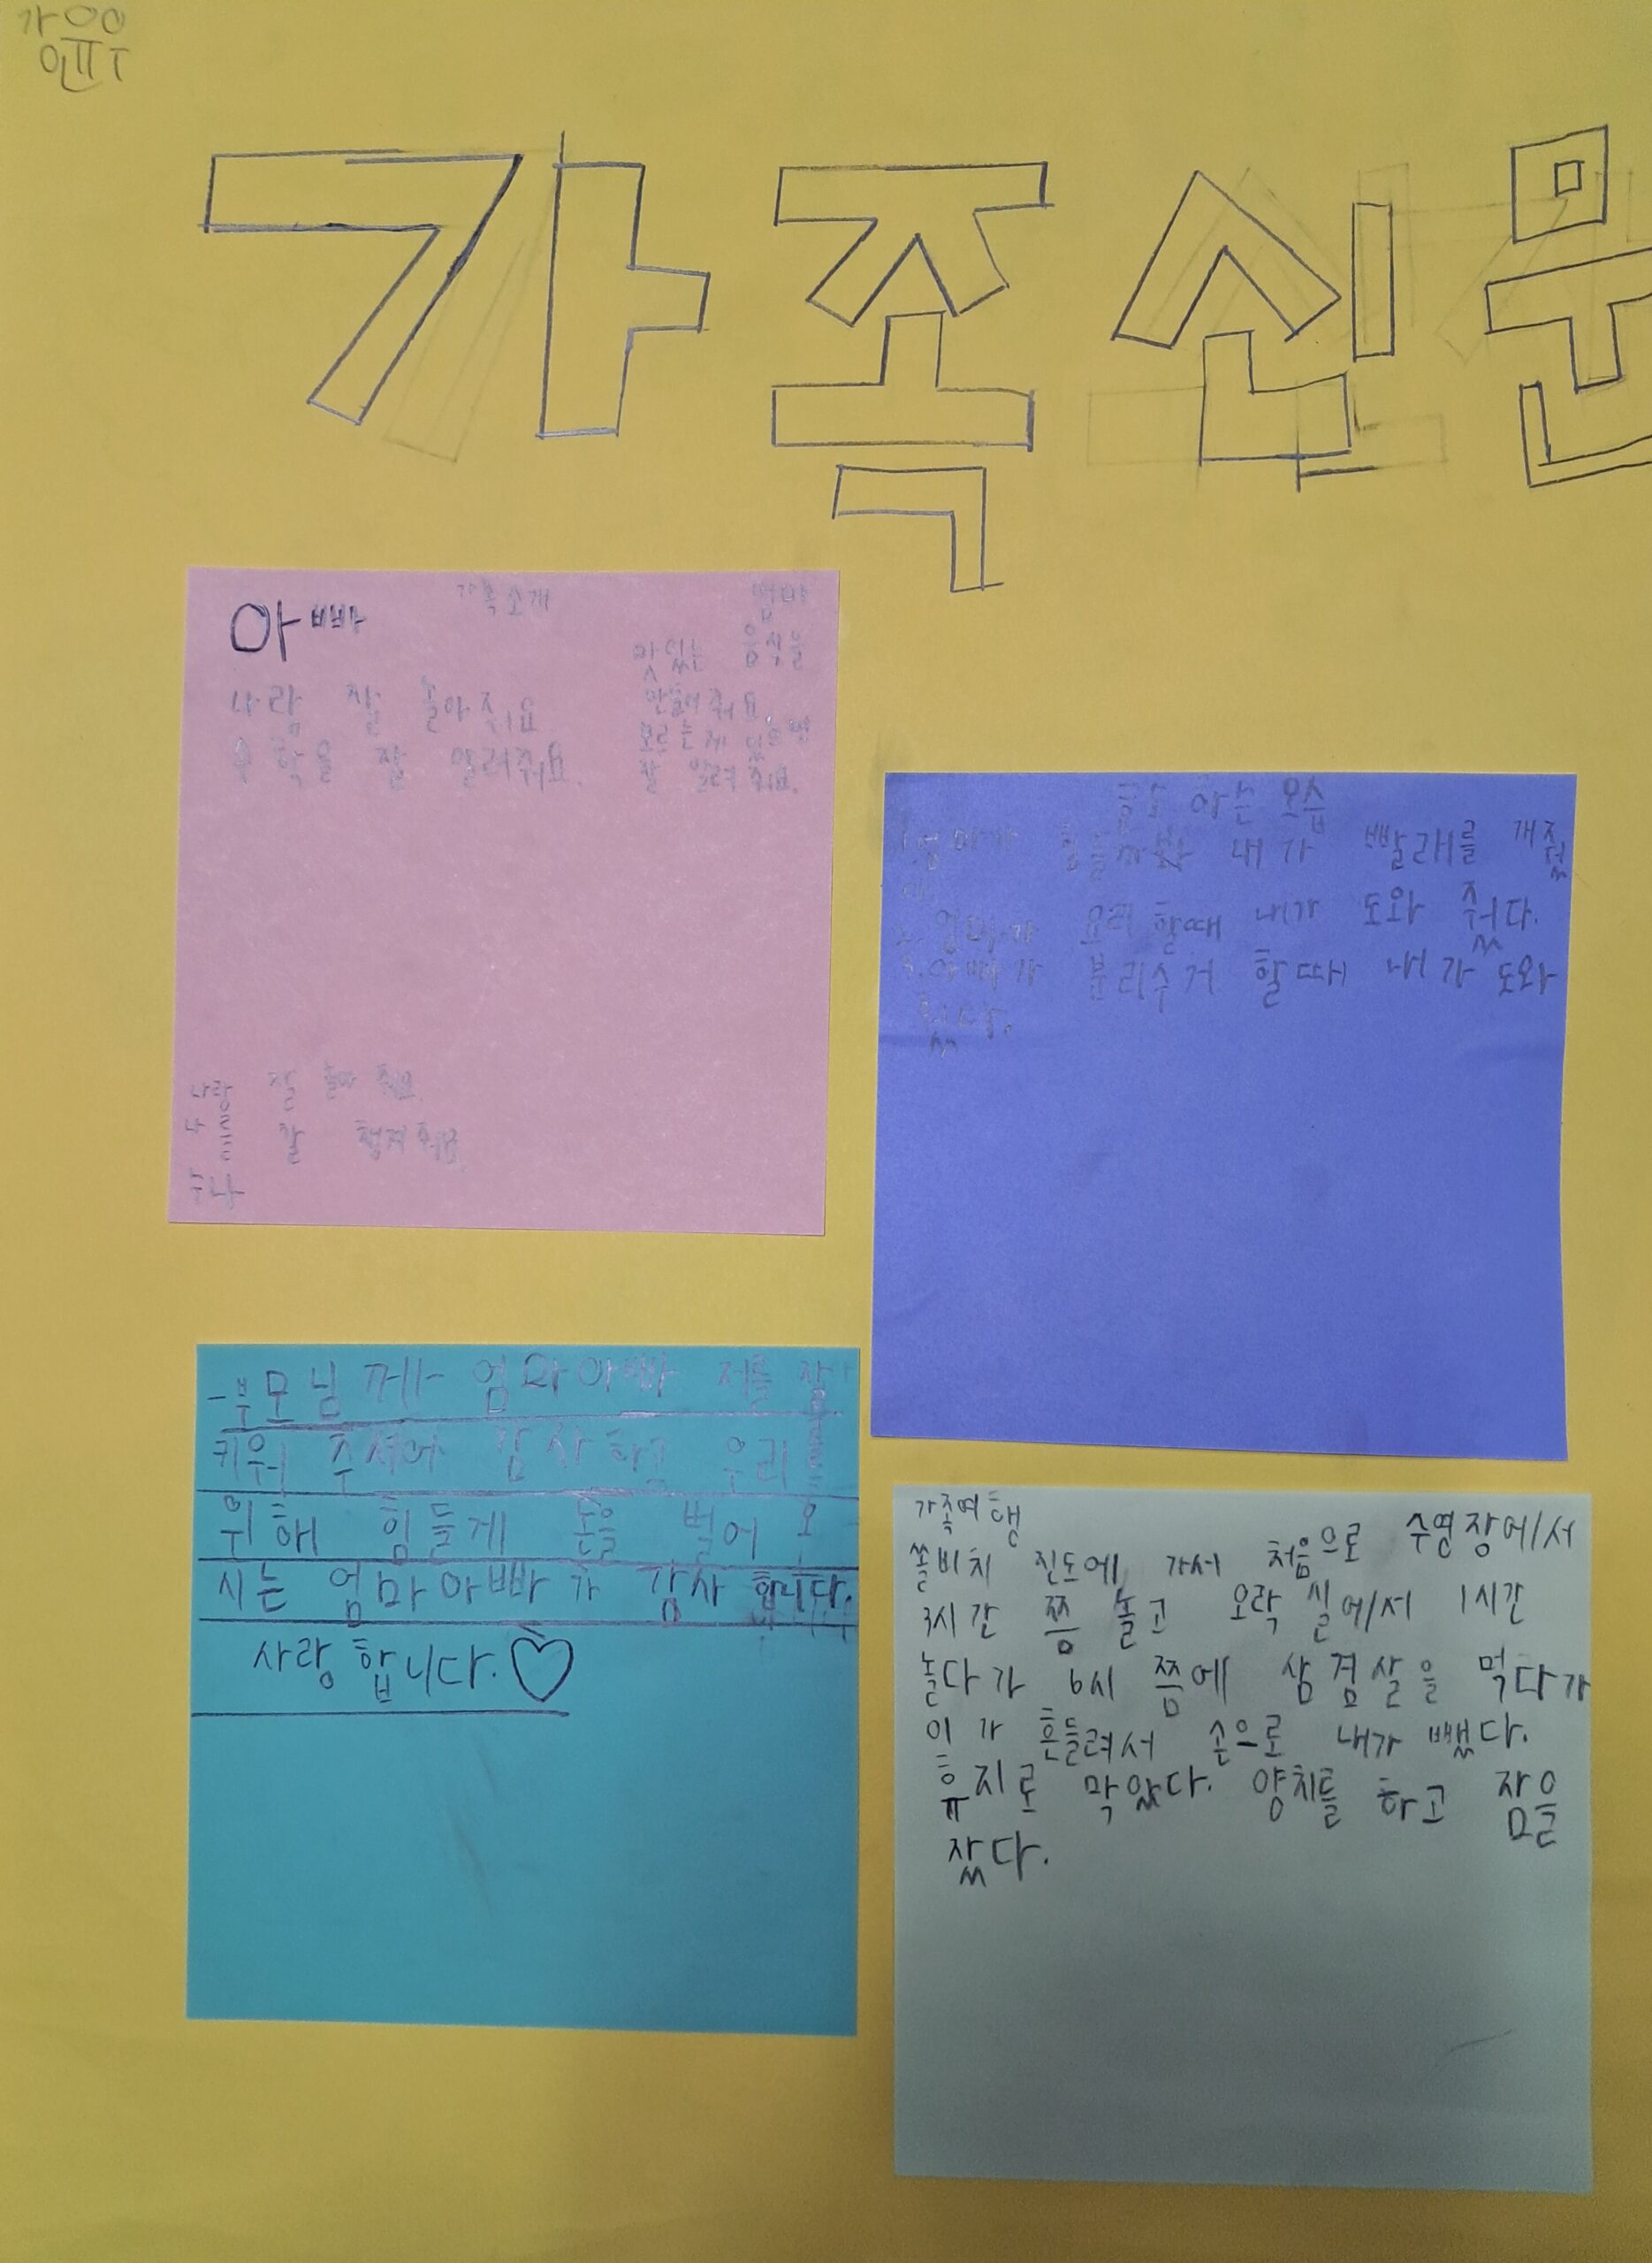 가족신문
가족소개
아빠
나랑 잘 놀아줘요
수학을 잘 알려줘요.
엄마
맛있는 음식을
만들어줘요.
모르는게 있으면
잘 알려줘요.
나랑 잘 놀아줘요.
나를 잘 챙겨줘요.
누나
하는 모습
엄마가 힘들까봐 내가 빨래를 개줬
다.
2. 엄마가 요리 할때 내가 도와 줬다.
3. 아빠가 분리수거 할때 내가 도와
줬다.
-부모님께- 엄마아빠 저를 잘
키워 주셔서 감사하고 우리를
위해 힘들게 돈을 벌어 오
시는 엄마아빠가 감사 합니다.
사랑합니다.♡
가족여행
쏠비치 진도에 가서 처음으로 수영장에서
3시간 쯤 놀고 오락실에서 1시간
놀다가 6시 쯤에 삼겹살을 먹다가
이가 흔들려서 손으로 내가 뺐다.
휴지로 막았다. 양치를 하고 잠을
잤다.